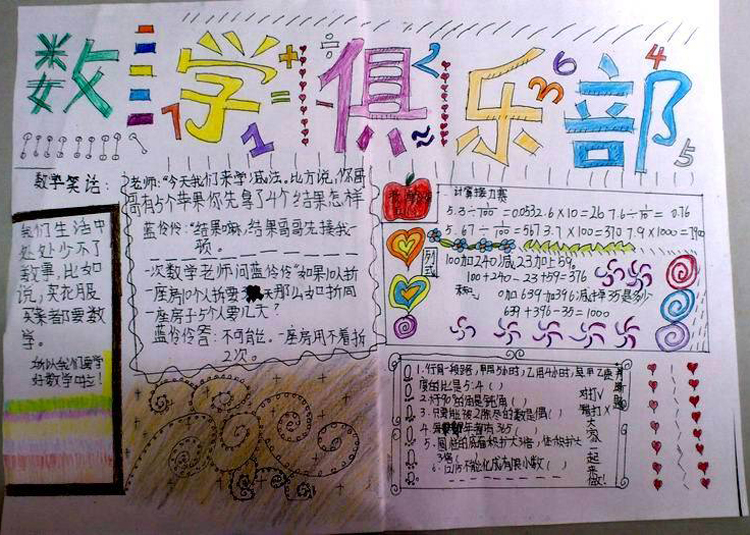 数学俱乐部
数学笑话:
老师:“今天我们来学减法。比方说,你哥
哥有5个苹果你先拿了4个结果怎样
蓝伶伶:“结果嘛,结果哥哥先接我一
顿。
一次数学老师问蓝伶伶“如果10人拆
一座房10个人拆要 天那么如折同
一座房子5个人要几天?
蓝伶伶答:不可能。一座房用不着拆
2次。
我们生活中
处处少不了
数学,比如
说,买衣服
买菜都要数
学。
所以我们要学
好数学哦!
计算接力赛
5.3÷ =0.0532.6×10=26 7.6÷ =0.76
5.67÷ =567 3.7×100=370 7.9×1000=7900
列式
100加240减23加上59。
100+240-23+59=376
0加639加396减 35是多少
639+396-35=1000
1.行同一段路,甲用5小时,乙用4小时,甲乙速
度的比是5:4( )
2.大于90°的角是钝角( )
3.只要能被2除尽的数是偶( )
4. 年都有365( )
5. 的底面积扩大3倍,体积扩大
3倍( )
6. 不能化成有限小数( )
对打√
错打×
大家一起来做!